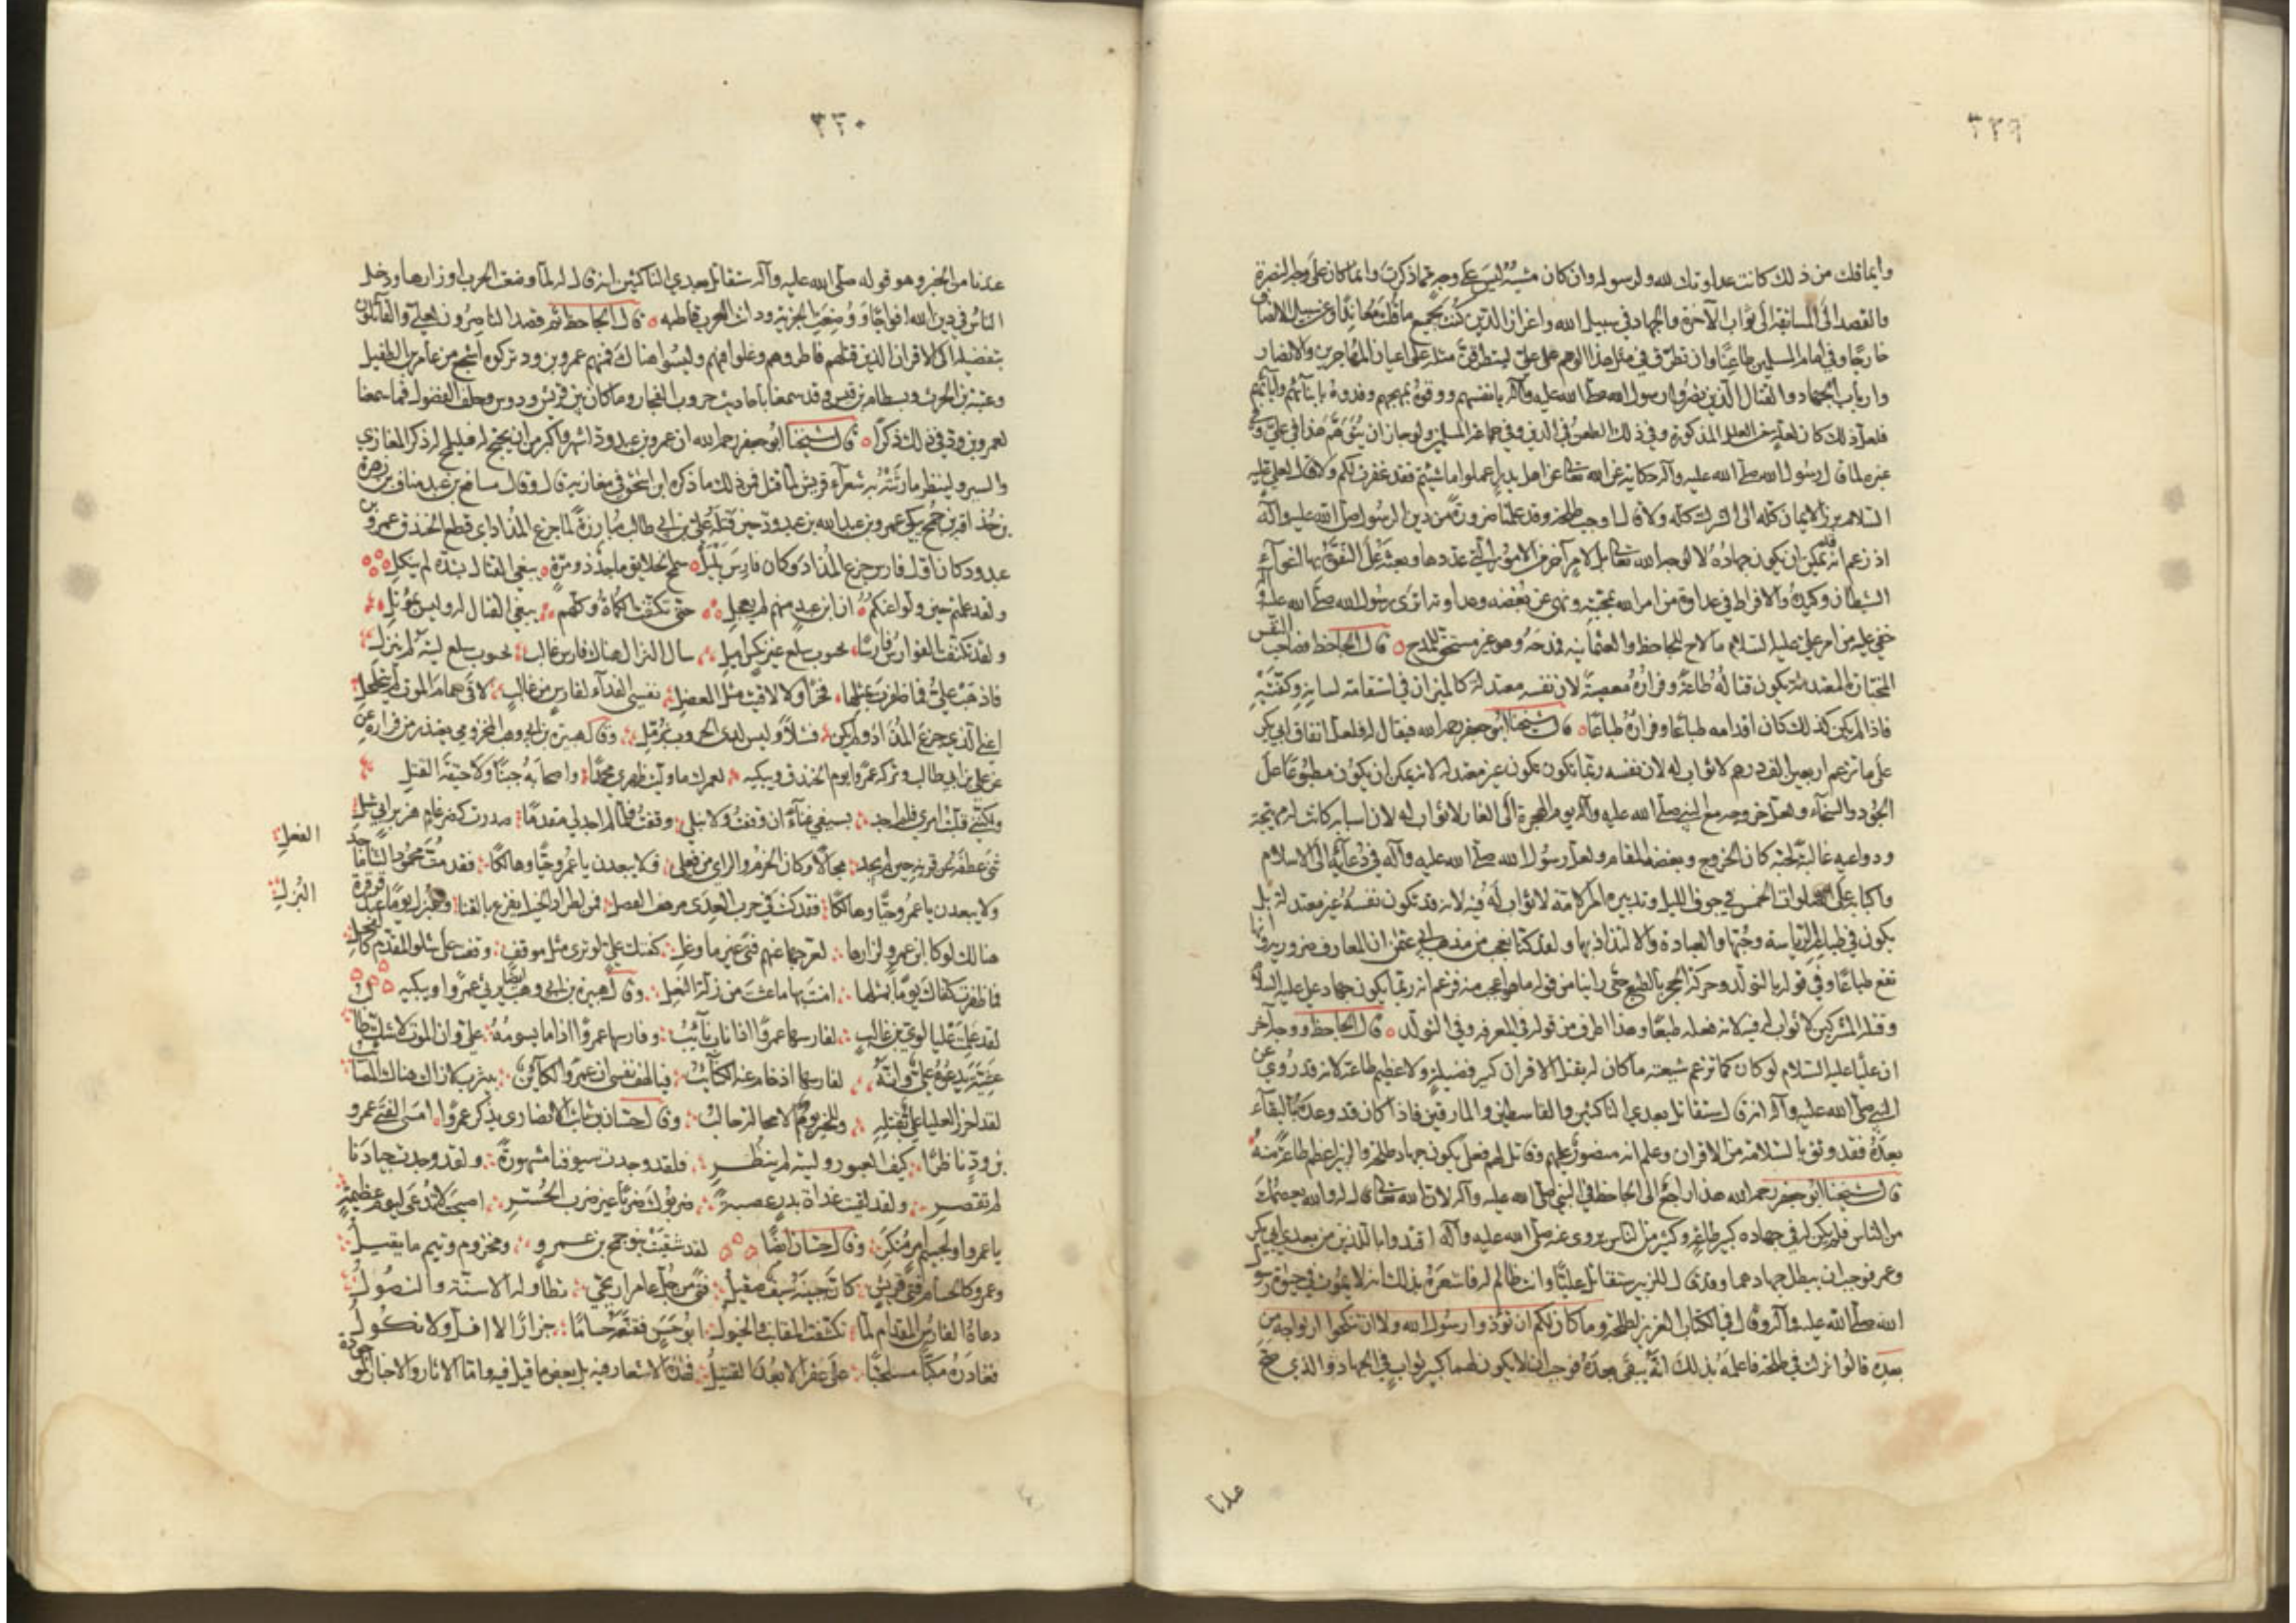 ٣٢٩
وانما قلت من ذلك كانت عداوتك لله ولرسوله وان كان مشيه ليس على وجه مما ذكرت وانما كان على وجه النصرة
والقصد الى المسابقة الى ثواب الآخرة والجهاد في سبيل الله واعزاز الدين كنت بجميع ما قلت معاندا وعن سبيل الانصاف
خارجا وفي امام المسلمين طاعنا وان تطرق في مثل هذا الوهم على علي ليتطرقن مثله على اعيان المهاجرين والانصار
وارباب الجهاد والقتال الذين نصروا رسول الله صلى الله عليه وآله بانفسهم ووقوه بمهجهم وفدوه بابنائهم وآبائهم
فلعل ذلك كان لعلة من العلل المذكورة وفي ذلك الطعن في الدين وفي جماعة المسلمين ولو جاز ان يتوهم هذا في علي وفي
غيره لما قال رسول الله صلى الله عليه وآله حكاية عن الله تعالى عن اهل بدر اعملوا ما شئتم فقد غفرت لكم ولا قال لعلي عليه
السلام برز الايمان كله الى الشرك كله ولا قال اوجب طلحة وقد علمنا ضرورة من دين الرسول صلى الله عليه وآله
الشيطان وكيده والافراط في عداوة من امر الله بمحبته ونهى عن بغضه وعداوته اترى رسول الله صلى الله عليه وآله
خفي عليه من امر علي عليه السلام ما لاح للجاحظ والعثمانية فمدحه وهو غير مستحق للمدح قال الجاحظ فصاحب النفس
المختارة المعتدلة يكون قتاله طاعة وفراره معصية لان نفسه معتدلة كالميزان في استقامة لسانه وكفتيه
فاذا لم يكن كذلك كان اقدامه طباعا وفراره طباعا قال شيخنا ابو جعفر رحمه الله فيقال له فلعل انفاق ابي بكر
على ما تزعم اربعين الف درهم لا ثواب له لان نفسه ربما تكون غير معتدلة لانه يمكن ان يكون مطبوعا على
الجود والسخاء ولعل خروجه مع النبي صلى الله عليه وآله يوم الهجرة الى الغار لا ثواب له لان اسبابه كانت له مهيجة
ودواعيه غالبة محبة كان الخروج وبغض المقام ولعل رسول الله صلى الله عليه وآله في دعائه الى الاسلام
واكبابه على الصلوات الخمس في جوف الليل وتدبيره امر الامة لا ثواب له فيه لانه قد تكون نفسه غير معتدلة بل
يكون في طباعه الرياسة وحبها والعبادة والالتذاذ بها ولقد كنا نعجب من مذهب ابي عثمن ان المعارف ضرورية وانها
تقع طباعا وفي قوله بالتولد وحركة الحجر بالطبع حتى رأينا من قوله ما هو اعجب منه فزعم انه ربما يكون جهاد علي عليه السلام
وقتله المشركين لا ثواب له فيه لانه فعله طبعا وهذا اطرف من قوله في المعرفة وفي التولد قال الجاحظ ووجه آخر
ان عليا عليه السلام لو كان كما تزعم شيعته ما كان له بقتل الاقران كبير فضيلة ولا عظيم طاعة لانه قد روي عن
النبي صلى الله عليه وآله انه قال له ستقاتل بعدي الناكثين والقاسطين والمارقين فاذا كان قد وعده بالبقاء
بعده فقد وثق بالسلامة من الاقران وعلم انه منصور عليهم وقاتل لهم فعلى هذا يكون جهاد طلحة والزبير اعظم طاعة منه
قال شيخنا ابو جعفر رحمه الله هذا راجع الى الجاحظ في النبي صلى الله عليه وآله لان الله تعالى قال له والله يعصمك
من الناس فلم يكن له في جهاده كبير طاعة وكثير من الناس يروي عنه صلى الله عليه وآله اقتدوا بالذين من بعدي ابي بكر
وعمر فوجب ان يبطل جهادهما وقد قال للزبير ستقاتل عليا وانت ظالم له فاشعره بذلك انه لا يموت في حياة رسول
الله صلى الله عليه وآله وقال في الكتاب العزيز لطلحة وما كان لكم ان تؤذوا رسول الله ولا ان تنكحوا ازواجه من
بعده قالوا نزلت في طلحة فاعلمه بذلك انه يبقى بعده فوجب ان لا يكون لهما كبير ثواب في الجهاد والذي صح
عندنا
٣٣٠
عندنا من الخبر وهو قوله صلى الله عليه وآله ستقاتل بعدي الناكثين انه قال له لما وضعت الحرب اوزارها ودخل
الناس في دين الله افواجا ووضعت الجزية ودانت العرب قاطبة قال الجاحظ ثم قصد الناصرون لعلي والقائلون
بتفضيله الى الاقران الذين قتلهم فاطروهم وغلوا فيهم وليسوا هناك فمنهم عمرو بن ود تركوه اشجع من عامر بن الطفيل
وعتبة بن الحرث وبسطام بن قيس وقد سمعنا باحاديث حروب الفجار وما كان بين قريش ودوس وحلف الفضول فما سمعنا
لعمرو بن ود في ذلك ذكرا قال شيخنا ابو جعفر رحمه الله ان عمرو بن عبد ود اشهر واكبر من ان يحتج له فليلمح لذكر المغازي
والسير ولينظر ما رثته به شعراء قريش لما قتل فمن ذلك ما ذكره ابن اسحق في مغازيه قال وقال مسافع بن عبد مناف بن زهرة
بن حذافة بن جمح يبكي عمرو بن عبد الله بن عبد ود حين قتله علي بن ابي طالب مبارزة لما جزع المذاد اي قطع الخندق عمرو بن
عبد ود كان اول فارس جزع المذاد وكان فارس يليل سمح الخلائق ماجد ذو مرة يبغي القتال بشدة لم ينكل
ولقد علمتم حين ولوا عنكم ان ابن عبد منهم لم يعجل حتى تكنفه الكماة وكلهم يبغي القتال له وليس بمؤتل
ولقد تكنفت الفوارس فارسا بجنوب سلع غير نكس اميل سال النزال هناك فارس غالب بجنوب سلع ليته لم ينزل
فاذهب علي فما ظفرت بمثلها فخرا ولا لاقيت مثل المعضل نفسي الفداء لفارس من غالب لاقى حمام الموت لم يتحلحل
اعني الذي جزع المذاد ولم يكن فشلا وليس لدى الحروب بزمل وقال هبيرة بن ابي وهب المخزومي يعتذر من فراره عن
علي بن ابي طالب وتركه عمرا يوم الخندق ويبكيه لعمرك ما وليت ظهري محمدا واصحابه جبنا ولا خيفة القتل
ولكنني قلبت امري فلم اجد بسيفي غناء ان وقفت ولا نبلي وقفت فلما لم اجد لي مقدما صدرت كضرغام هزبر ابي شبل
ثنى عطفه عن قرنه حين لم يجد مجالا وكان الحزم والراي من فعلي فلا يبعدن يا عمرو حيا وهالكا فقد مت محمود الثنا ماجد
الفعل
ولا يبعدن يا عمرو حيا وهالكا فقد كنت في حرب العدى مرهف النصل فمن لطراد الخيل تقرع بالقنا
النزل
هنالك لو كان ابن عمرو لزارها
فما ظفرت كفاك يوما بمثلها امنت بها ما عشت من زلة النعل وقال هبيرة بن ابي وهب ايضا يرثي عمرا ويبكيه
لقد علمت عليا لؤي بن غالب لفارسها عمرو اذا ناب نائب وفارسها عمرو اذا ما يسومه علي وان الموت لا شك طالب
عشية يدعوه علي وانه لفارسها اذ خام عنه الكتائب فيا لهف نفسي ان عمرا لكائن بيثرب لا زالت هناك المصائب
لقد احرز العليا علي بقتله وللخير يوما لا محالة جالب وقال حسان بن ثابت الانصاري يذكر عمرا امسى الفتى عمرو
بن ود ناظرا كيف العبور وليته لم ينظر فلقد وجدت سيوفنا مشهورة ولقد وجدت جيادنا
لم تقصر ولقد لقيت غداة بدر عصبة ضربوك ضربا غير ضرب الحسر اصبحت لا تدعى ليوم عظيمة
يا عمرو او لجسيم امر منكر وقال حسان ايضا لقد شقيت بنو جمح بن عمرو ومخزوم وتيم ما نقيل
وعمرو كالحسام فتى قريش كان جبينه سيف صقيل فتى من نسل عامر اريحي تطاوله الاسنة والنصول
دعاه الفارس المقدام لما تكشفت المقانب والخيول ابو حسن فقنعه حساما جرازا لا افل ولا نكول
فغادره مكبا مسلحبا على عفراء لا بعد القتيل فهذه الاشعار فيه بل بعض ما قيل فيه واما الآثار والاخبار